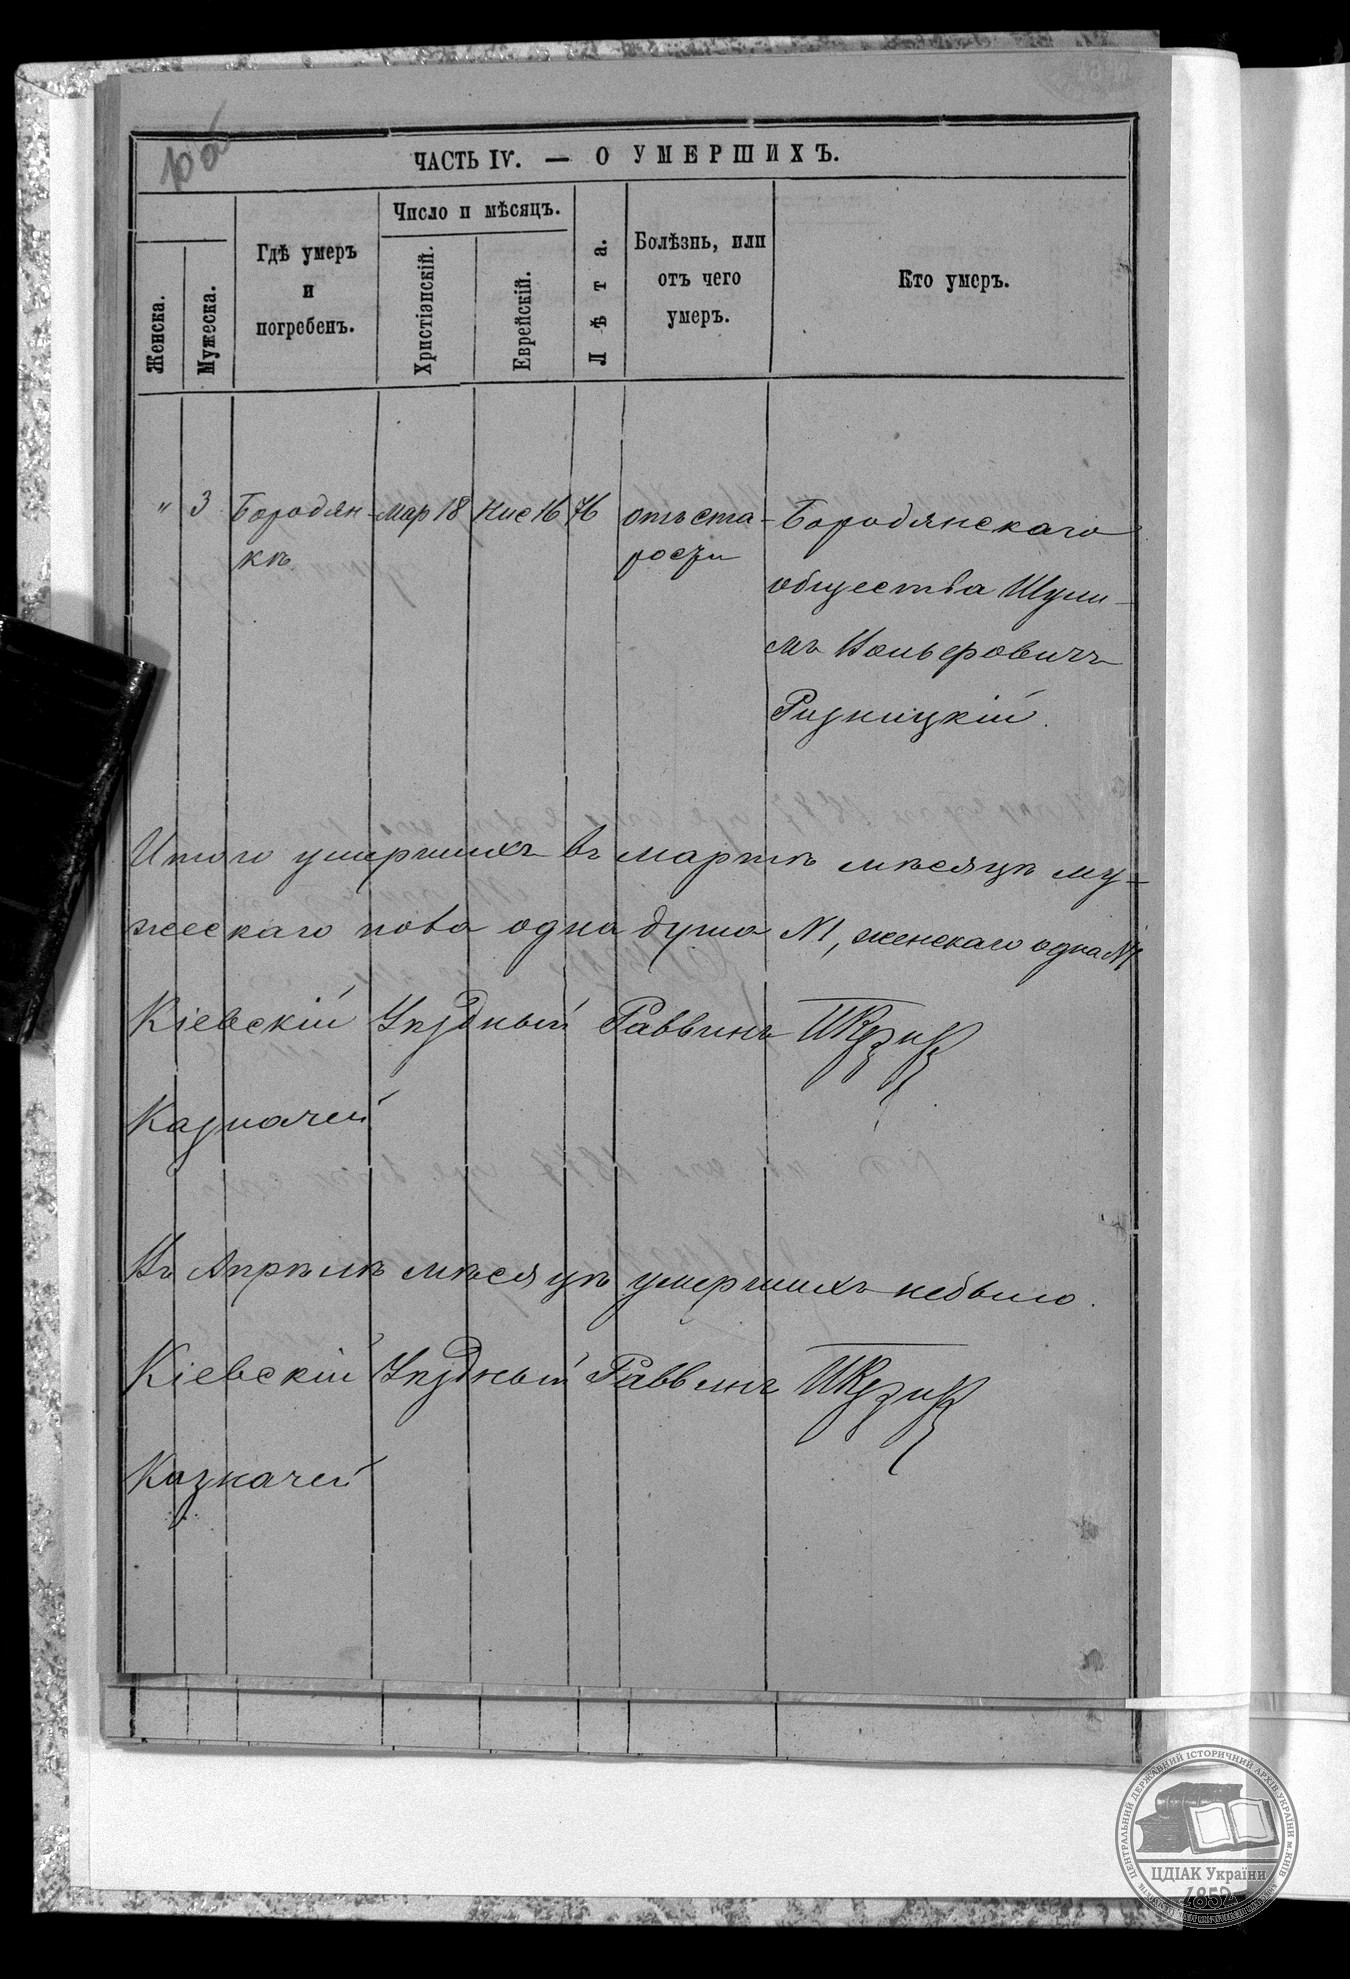 ЧАСТЬ IV. — О УМЕРШИХЪ.
Женска.
Мужеска.
Гдѣ умеръ
и
погребенъ.
Число и мѣсяцъ.
Христіанскій.
Еврейскій.
Лѣта.
Болѣзнь, или
отъ чего
умеръ.
Кто умеръ.
" 3 Бородян- Мар 18 Нис 16 76 отъ ста- Бородянскаго
кѣ рости
общества Шули-
мъ
Ризницкій.
Итого умершихъ въ мартѣ мѣсяцѣ му-
жескаго пола одна душа №1, женскаго одна №1
Кіевскій Уѣздный Раввинъ
Казначей
Въ Апрѣлѣ мѣсяцѣ умершихъ небыло.
Кіевскій Уѣздный Раввинъ
Казначей
ЦЕНТРАЛЬНИЙ ДЕРЖАВНИЙ ІСТОРИЧНИЙ АРХІВ УКРАЇНИ М. КИЇВ
ЦДІАК України
1852